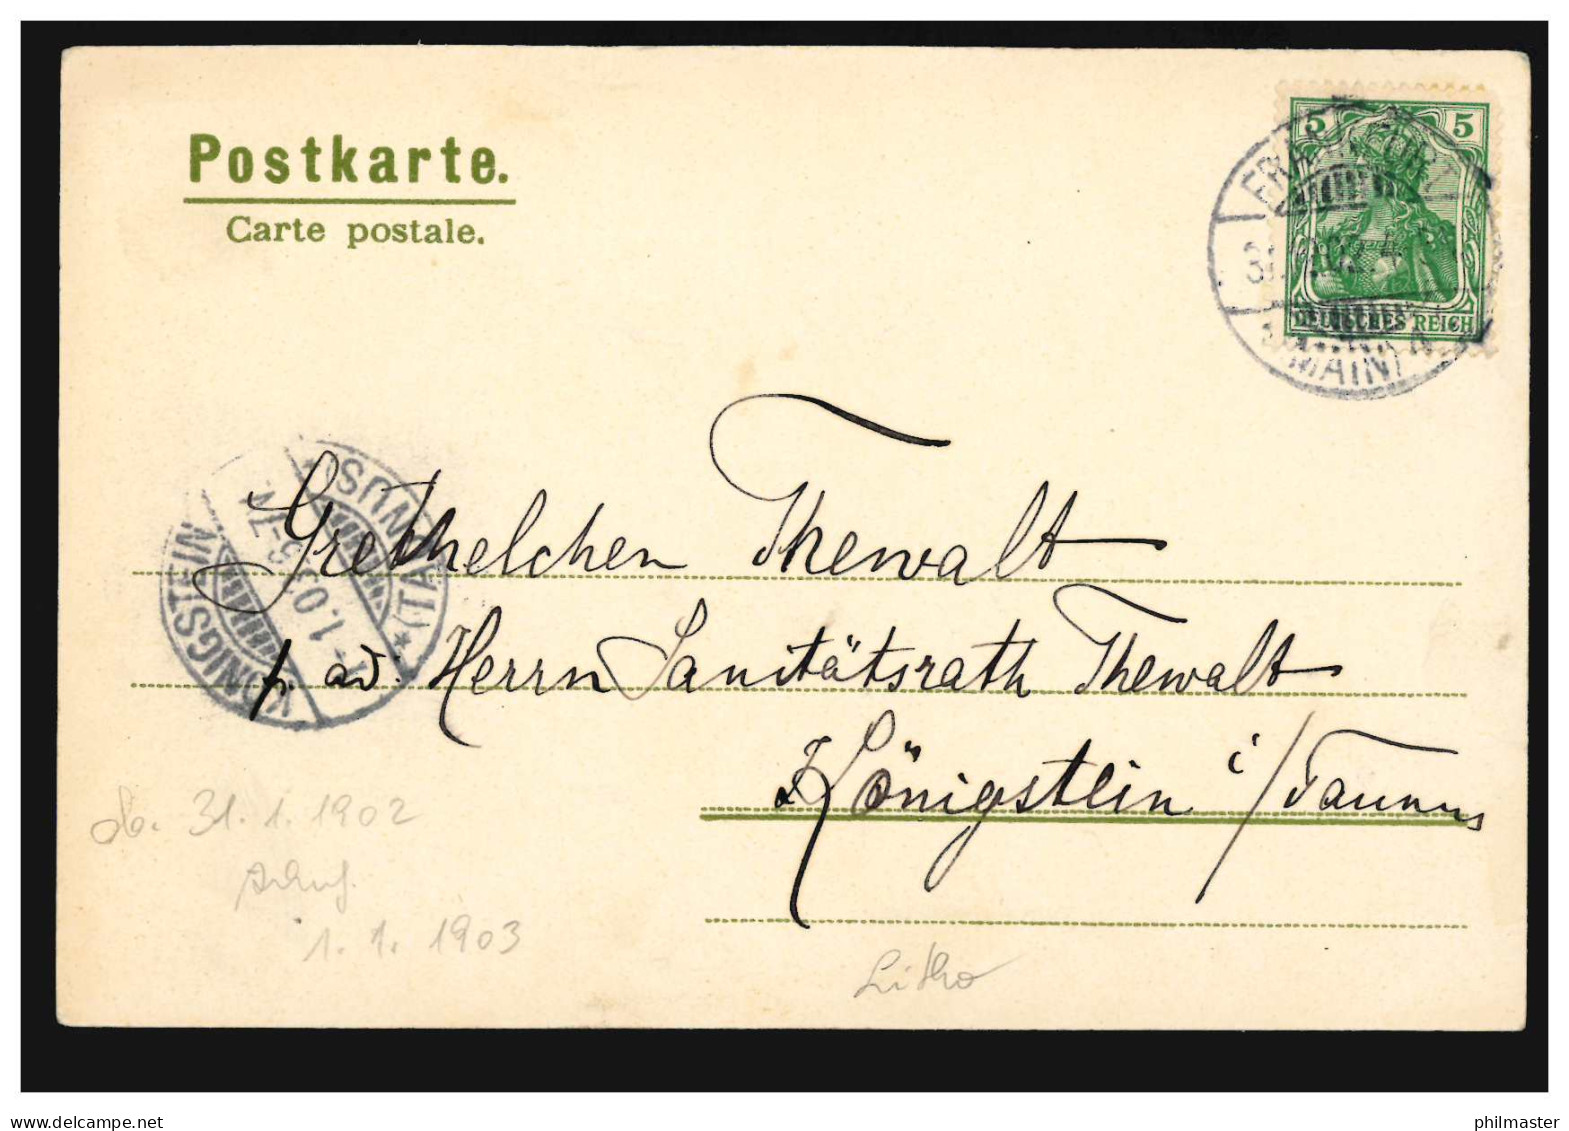 Postkarte.
Carte postale.
5 5
DEUTSCHES REICH
FRANKFURT
(MAIN)
KÖNIGSTEIN
(TAUNUS)
1.1.03. 5-7V
Gretchelchen Thewalt
p. ad: Herrn Sanitätsrath Thewalt
Königstein i/Taunus
31.1.1902
1.1.1903
Litho
www.delcampe.net
philmaster